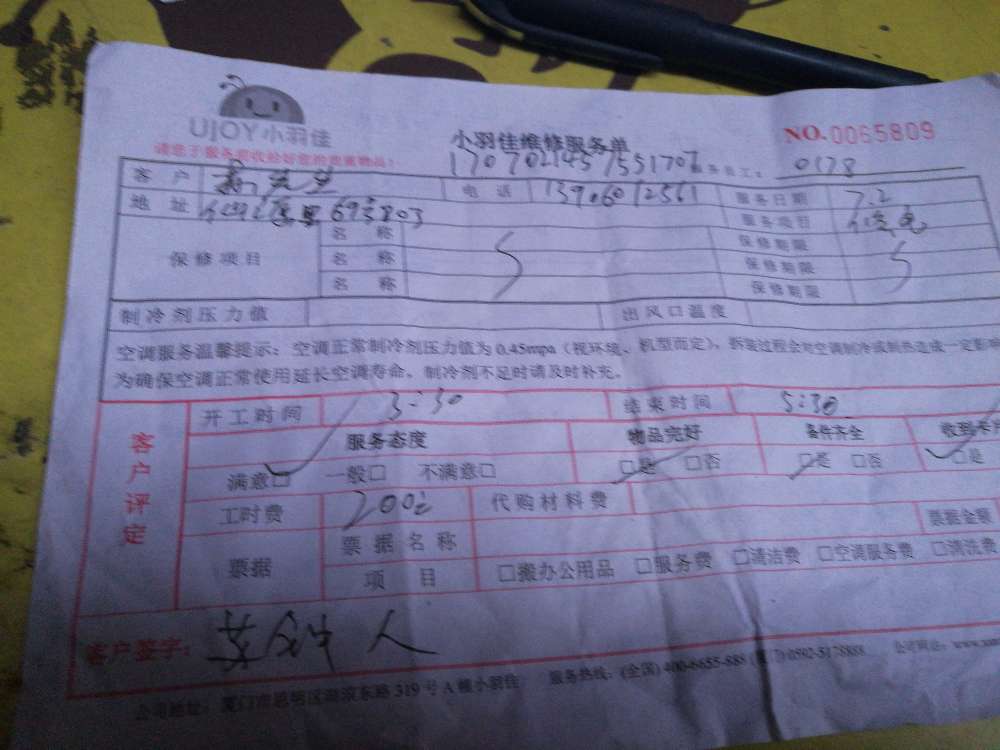 UJOY小羽佳
小羽佳维修服务单
NO.0065809
170702145755170
员工: 0178
客户
电话 13960612561
服务日期 7.2
地址 693803
服务项目
保修项目
名称
保修期限
名称
保修期限
名称
保修期限
制冷剂压力值
出风口温度
空调服务温馨提示:空调正常制冷剂压力值为0.45mpa(视环境、机型而定),拆装过程会对空调制冷或制热造成一定影响
为确保空调正常使用延长空调寿命,制冷剂不足时请及时补充。
客户评定
开工时间 3:30
结束时间 5:30
服务态度
物品完好
备件齐全
收到卡片
满意□ 一般□ 不满意□
□是 □否
□是 □否
□是
工时费 200元
代购材料费
票据
票据名称
票据金额
项目
□搬办公用品 □服务费 □清洁费 □空调服务费 □清洗费
客户签字:
公司地址:厦门市思明区湖滨东路319号A幢小羽佳 服务热线:(全国)400-6655-888 (厦门)0592-5178888 公司网址: